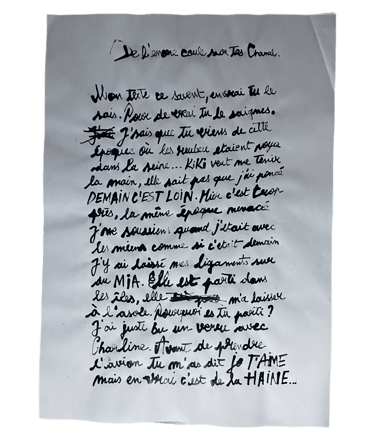 De l'encre coule sur tes Chanel.
Mon tête ce savent, en vrai tu le
sais. Pour de vrai tu le soignes.
J'sais que tu viens de cette
époque où les étaient
dans la seine... KiKi veut me tenir
la main, elle sait pas que j'ai
DEMAIN C'EST LOIN. Hier c'est trop
près, la même époque menacé
J'me souviens quand j'étais avec
les miens comme si c'était demain
J'y ai laissé mes ligaments sur
du MIA. Elle est parti dans
les îles, elle m'a laisser
à l'. Pourquoi es tu parti?
J'ai juste bu un verre avec
Charline. Avant de prendre
l'avion tu m'as dit Je T'AIME
mais en vrai c'est de la HAINE...